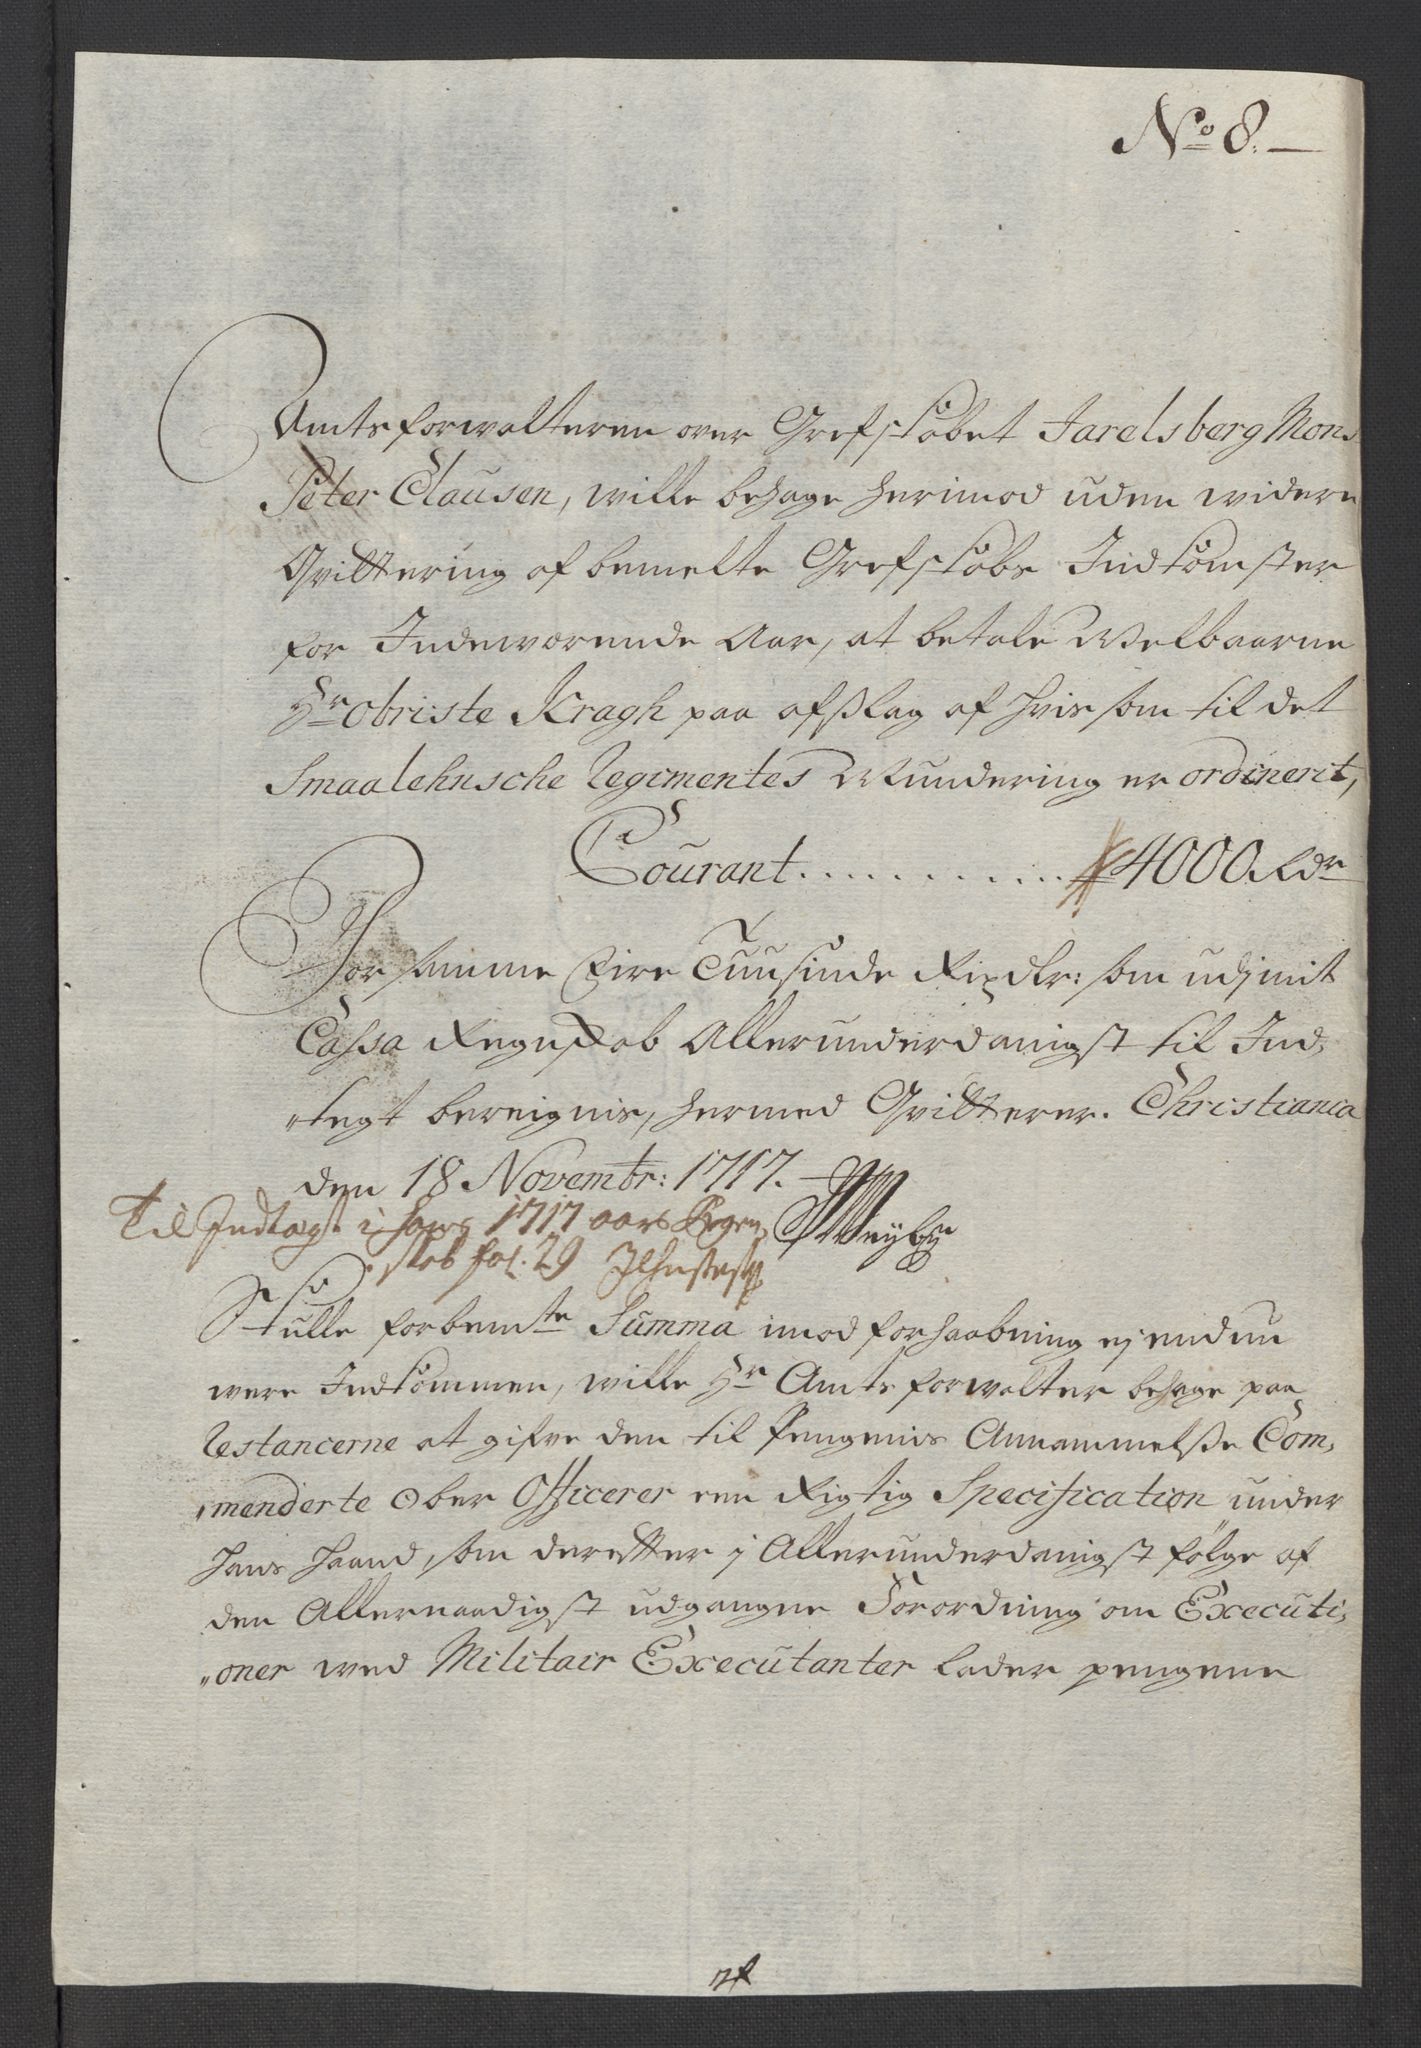 No 8.
Amtsforwalteren over Grefskabet Jarelsberg Mons
Peter Clausen, wille behage herimod uden widere
Qvittering af bemelte Grefskabs Indkomster
for Indeværende Aar, at betale Welbaarne
Hr Obriste Kragh paa afslag af hvis som til det
Smaalehnsche Regimentes Mundering er ordinerit,
Courant........... 4000 Rdr
For samme Fire Tuusinde Rixdlr: som udj mit
Cassa Regnskab Allerunderdanigst til Ind-
"tegt bereignis, hermed Qvitterer. Christiania
den 18 Novembr: 1717.
Til Indtægt i hans 1717 aars Regen
skab fol. 29
Skulle forbemte Summa imod forhaabning ej endnu
were Indkommen, wille Hr Amtsforwalter behage paa
Restancerne at gifve den til Pengenis Annammelsse Com-
"menderte Ober Officerer een Rigtig Specification under
hans haand, som derefter i Allerunderdanigst følge af
den Allernaadigst udgangne Forordning om Executi-
"oner wed Militair Executanter lader pengene